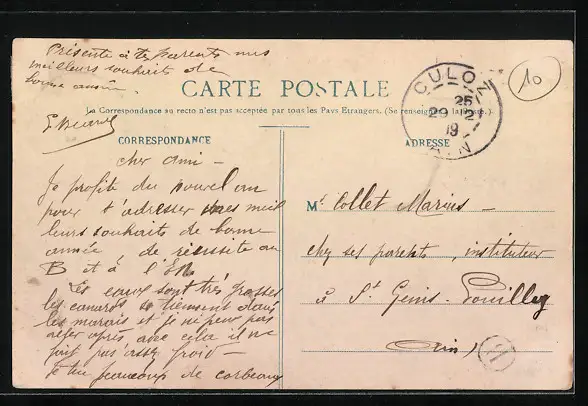 Présente à tes parents mes
meilleurs souhaits de
bonne année.
CARTE POSTALE
La Correspondance au recto n'est pas acceptée par tous les Pays Etrangers. (Se renseigner à la Poste.)
CULOZ
25
29 12
19
AIN
10
CORRESPONDANCE
ADRESSE
cher ami -
Je profite du nouvel an
pour t'adresser mes meil
leurs souhaits de bonne
année de réussite au
B et à l'EN
Les eaux sont très grosses
les canards se tiennent dans
les marais et je ne peux pas
aller après avec cela il ne
fait pas assez froid -
Je tue beaucoup de corbeaux
Mr Collet Marius -
chez ses parents, instituteur
à St Genis-Pouilly
(Ain)